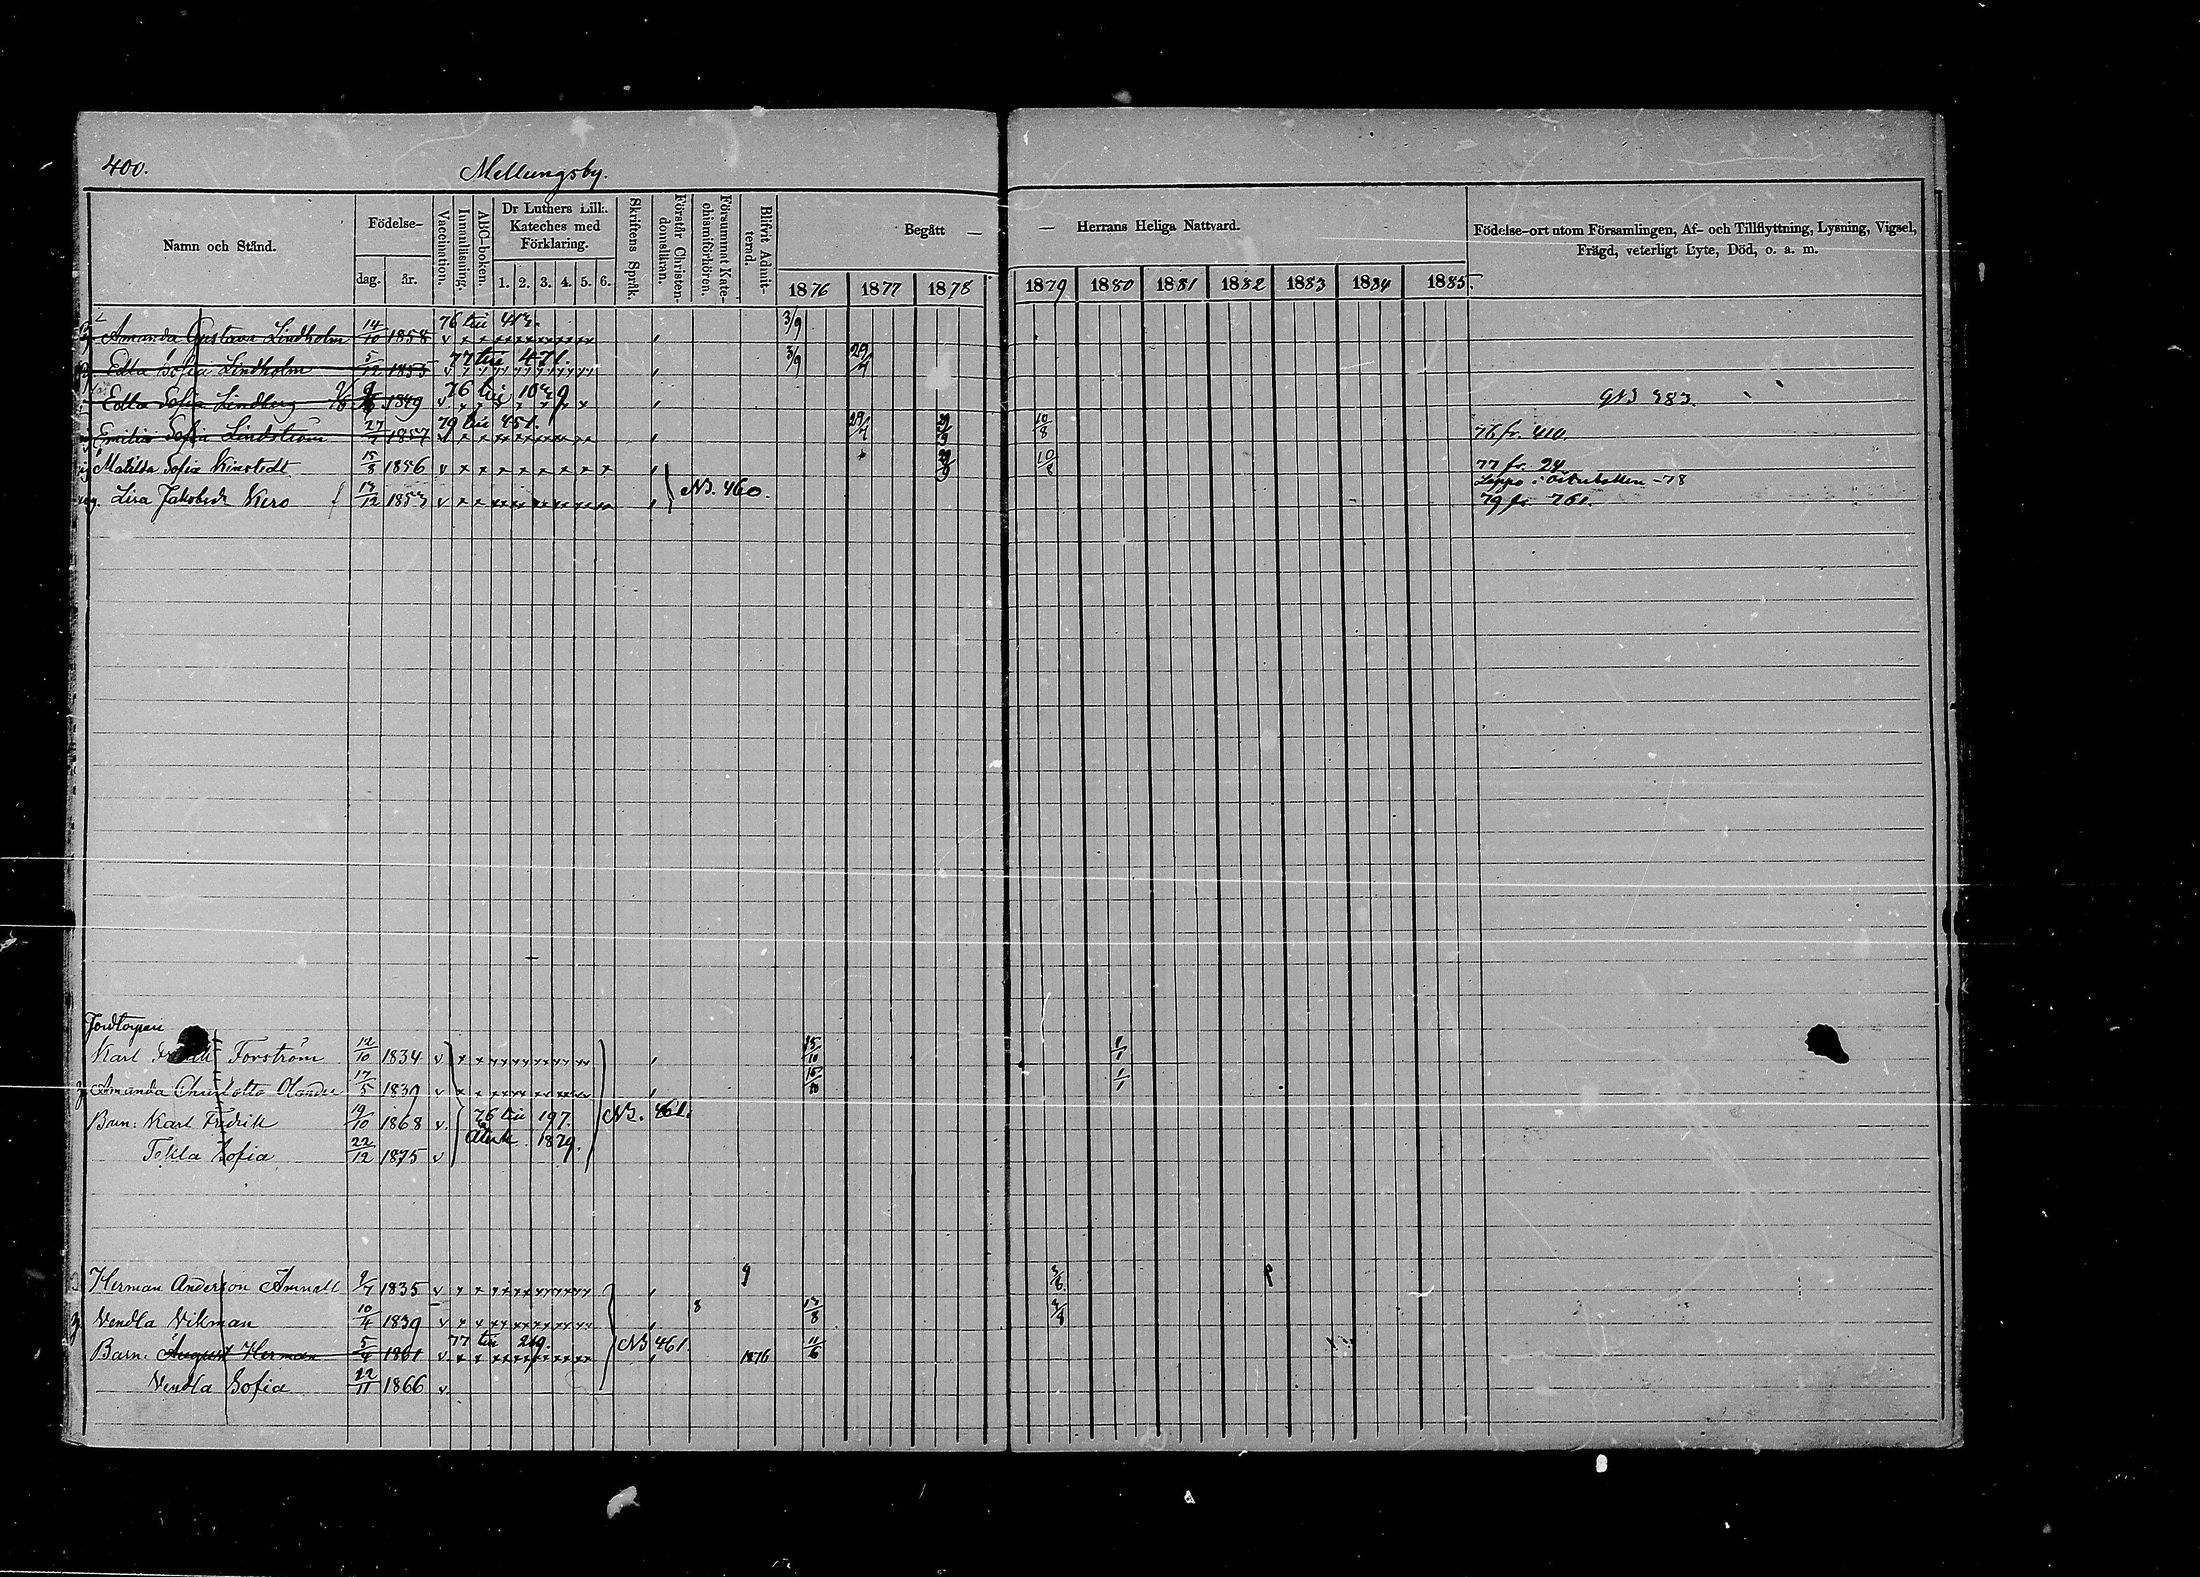 400. Mellungsby.
Namn och Stånd. Födelse- dag. år. Vaccination. Innanläsning. ABC-boken. Dr Luthers Lill: Kateches med Förklaring. 1. 2. 3. 4. 5. 6. Skriftens Språk. Förstår Christendomsläran. Försummat Katechismiförhören. Blifvit Admitterad. Begått — — Herrans Heliga Nattvard. Födelse-ort utom Församlingen, Af- och Tillflyttning, Lysning, Vigsel, Frägd, veterligt Lyte, Död, o. a. m.
1876 1877 1878 1879 1880 1881 1882 1883 1884 1885.
76 till
Amanda Gustava Lindholm 14/10 1858 v 3/9
77 till 471.
Edla Sofia Lindholm 5/12 1855 v 3/9 29/4
76 till
Edla Sofia Lindberg 1849 v 383.
79 till 451.
Emilia Sofia Lindström 27/7 1857 v 29/4 10/8 76 fr. 410.
Matilda Sofia Kinstedt 15/3 1856 v 10/8 77 fr. 24
NB. 460. Lappo i Österbotten -78
Lisa Jakobsdr Kero 13/12 1853 v 79 fr. 761.
Jordtorpare
Karl Forström 12/10 1834 v 15/10 1/1
Amanda Charlotta 17/5 1839 v 15/10 1/1
Barn: Karl Fredrik 19/10 1868 v 76 till 197. NB. 461.
Tekla Sofia 22/12 1875 v 1879.
Herman Anderson 9/7 1835 v 9 3/8
Vendla Vikman 10/4 1839 v 8 13/8 3/8
77 till 219. NB 461.
Barn: August Herman 5/4 1861 v 1876 11/6
Vendla Sofia 22/11 1866 v